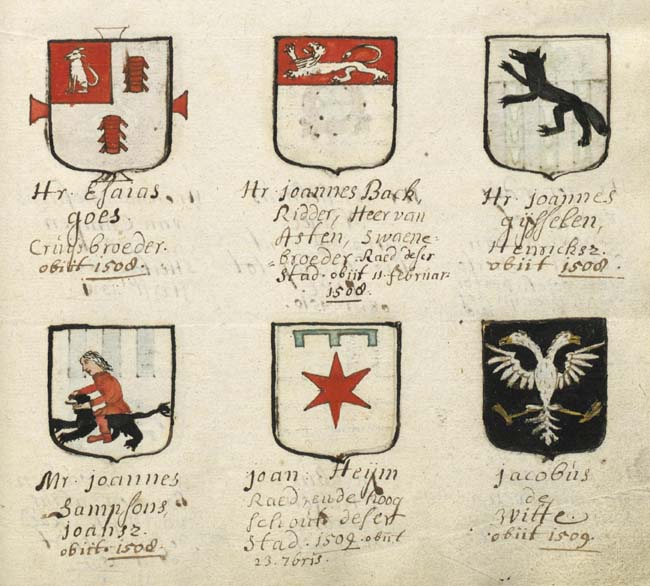 Hr. Esaias
goes
Cruijsbroeder.
obiit 1508.
Hr. joannes Back,
Ridder, Heer van
Asten, Swaene-
broeder. Raed deser
Stad. obiit 11 februar
1508.
Hr. joannes
gijsselen,
Henricksz.
obiit 1508.
Mr. joannes
Sampsons,
joansz.
obiit. 1508.
joan. Heijm
Raed, ende hoog
schout deser
Stad. 1509. obiit
23. 7bris.
jacobus
de
Witte.
obiit 1509.